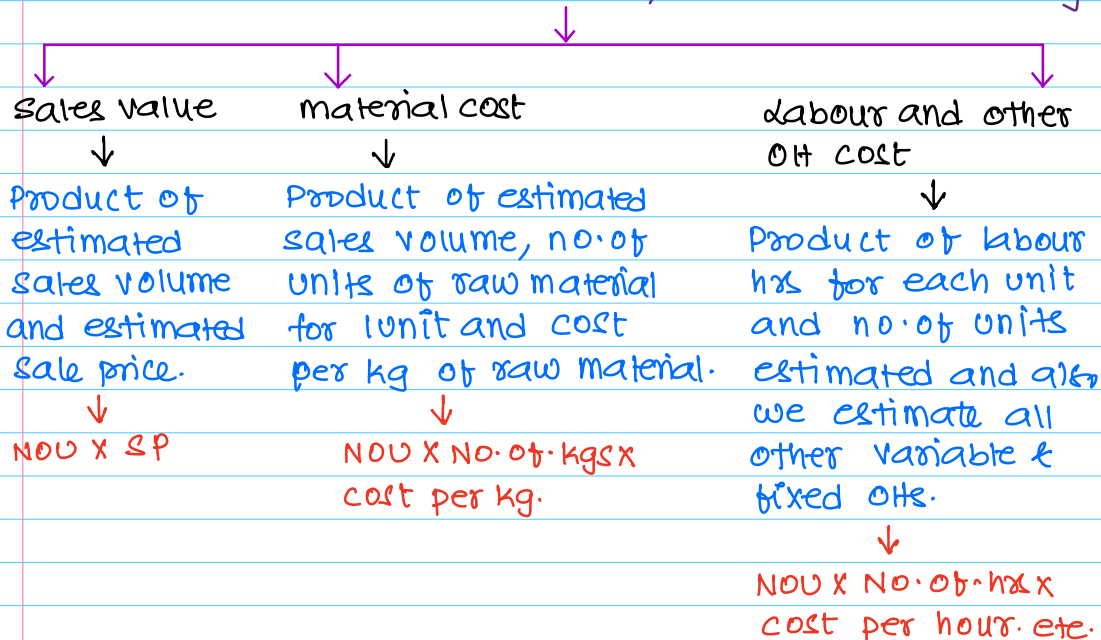 Sales value
↓
Product of
estimated
sales volume
and estimated
sale price.
↓
NOU X SP
material cost
↓
Product of estimated
sales volume, no. of
units of raw material
for 1unit and cost
per kg of raw material.
↓
NOU X No. of. kgs x
cost per kg.
Labour and other
OH cost
↓
Product of labour
hrs for each unit
and no. of units
estimated and also
we estimate all
other variable &
fixed OHs.
↓
NOU X No. of. hrs x
cost per hour. etc.